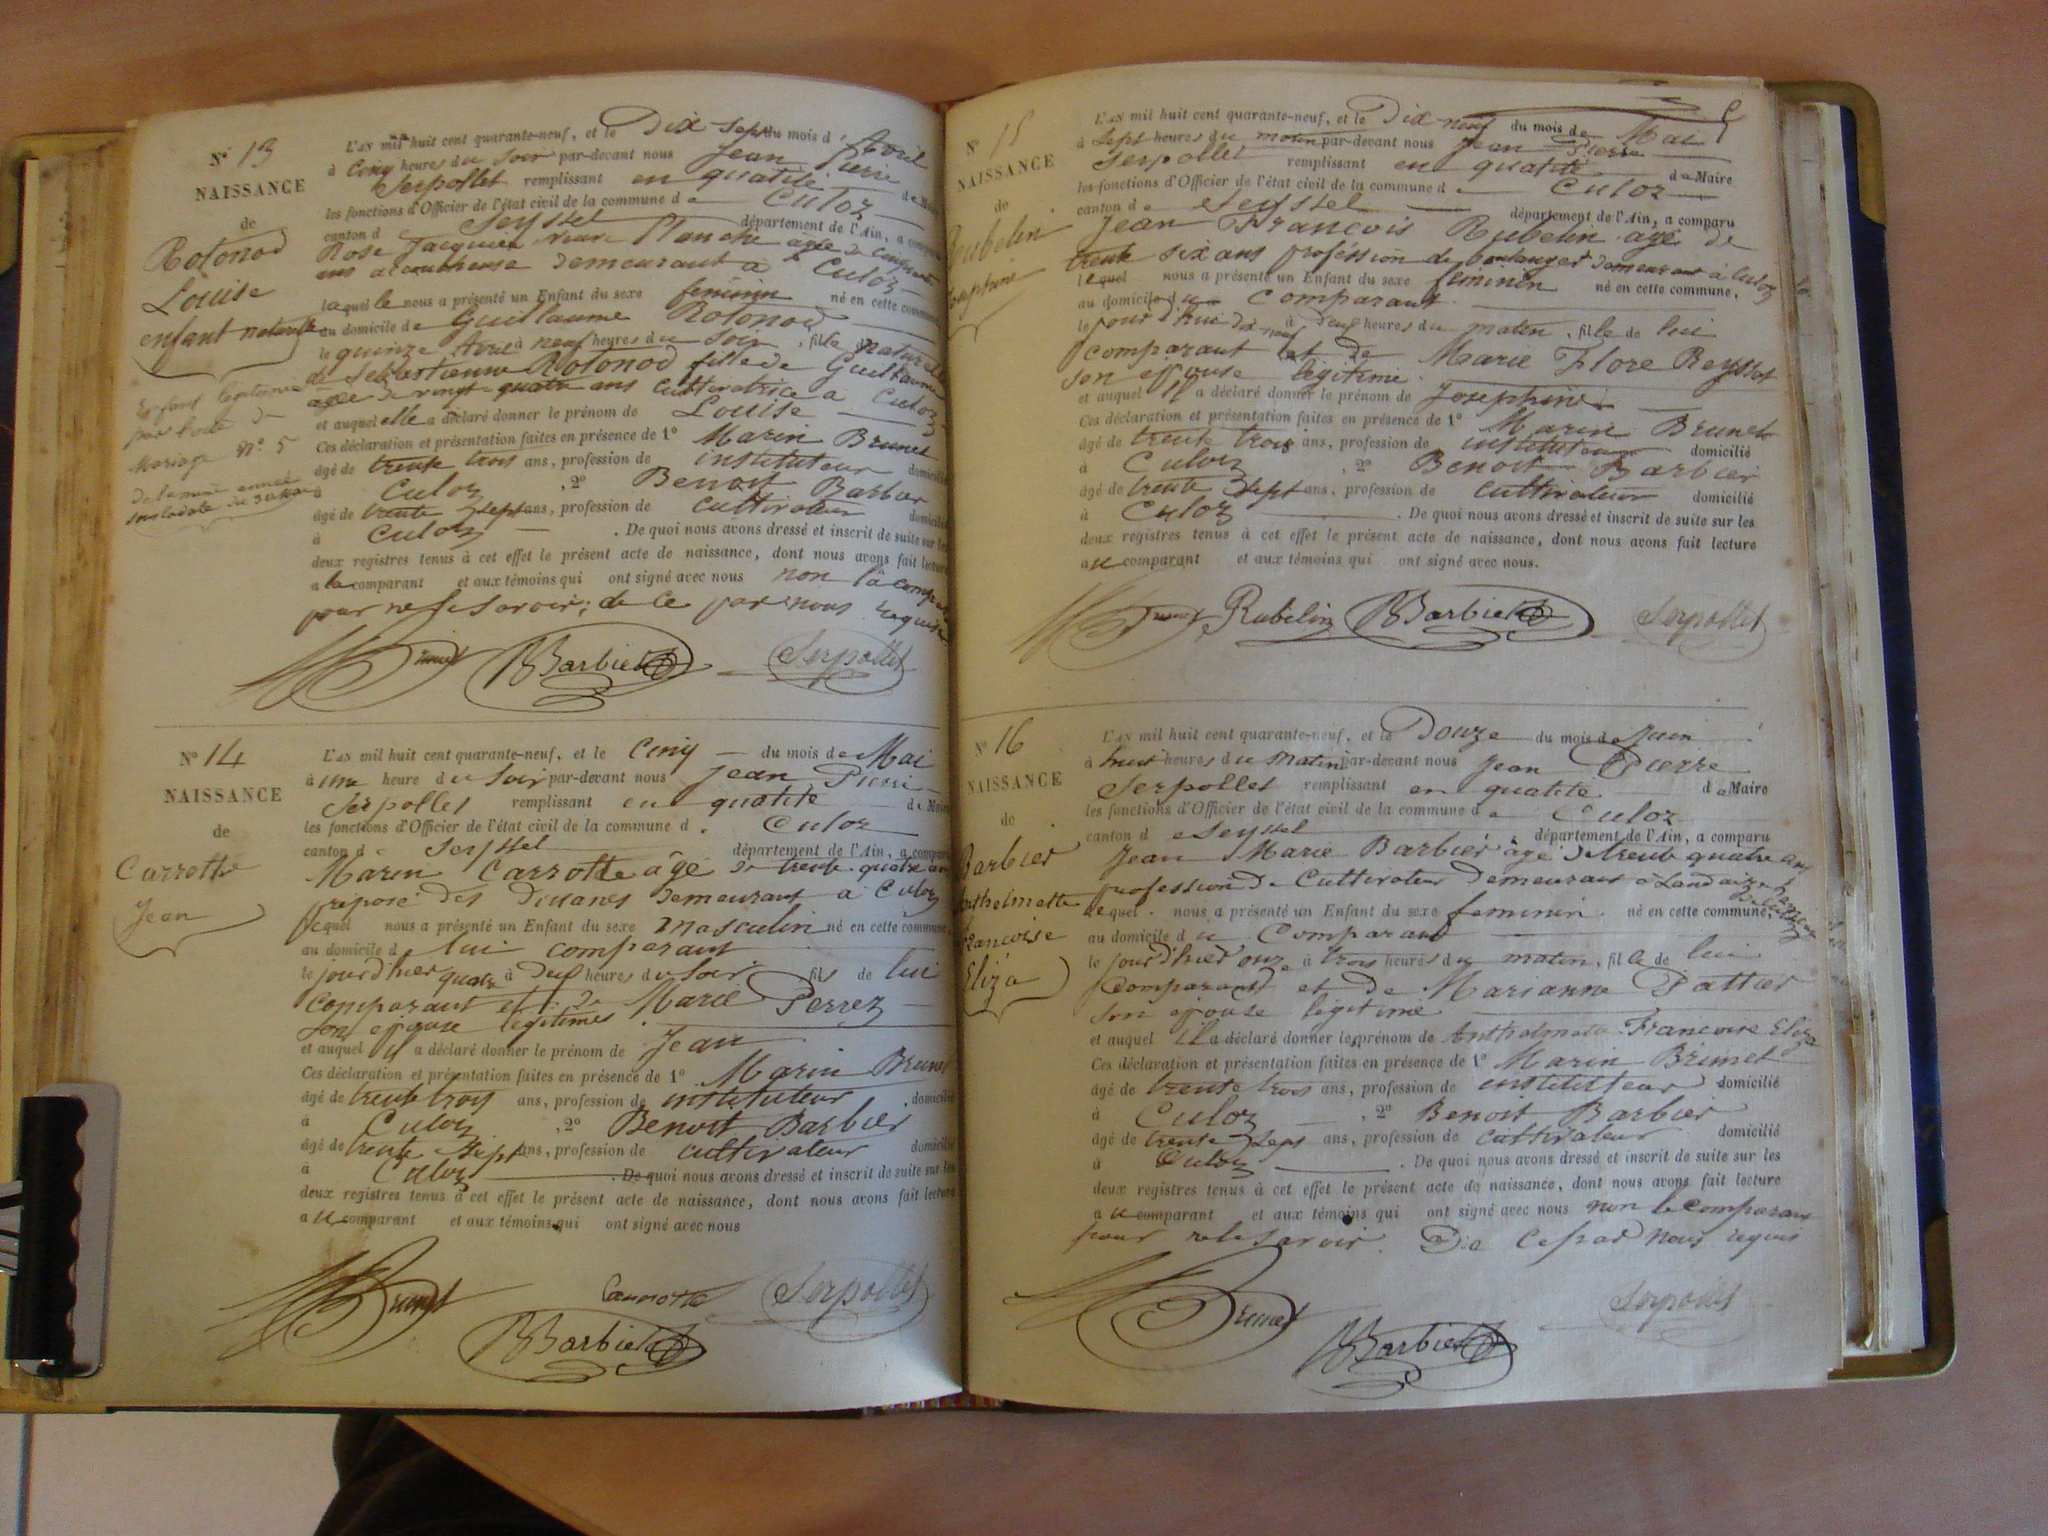 N° 13
NAISSANCE
de
Rotonod
Louise
enfant naturelle
Enfant légitimé
par l'acte de
Mariage N° 5
de la même année
sous la date du
L'AN mil huit cent quarante-neuf, et le Dix Sept du mois d' Avril
à Cinq heures du Soir par-devant nous Jean Pierre
Serpollet remplissant en qualité de Maire
les fonctions d'Officier de l'état civil de la commune de Culoz
canton de Seyssel département de l'Ain, a comparu
Rose Jacquier veuve Planche âgée de cinquante
ans accoucheuse demeurant à Culoz
laquelle nous a présenté un Enfant du sexe féminin né en cette commune
au domicile de Guillaume Rotonod
le quinze Avril à neuf heures du Soir, fille naturelle
de Sébastienne Rotonod fille de Guillaume
agée de vingt-quatre ans cultivatrice à Culoz
et auquel elle a déclaré donner le prénom de Louise
Ces déclaration et présentation faites en présence de 1° Marin Brunet
âgé de trente trois ans, profession de instituteur domicilié
à Culoz, 2° Benoit Barbier
âgé de trente sept ans, profession de cultivateur domicilié
à Culoz. De quoi nous avons dressé et inscrit de suite sur les
deux registres tenus à cet effet le présent acte de naissance, dont nous avons fait lecture
a la comparant et aux témoins qui ont signé avec nous non la comparante
pour ne le Savoir; de ce par nous requise
Brunet Barbier Serpollet
N° 14
NAISSANCE
de
Carrotte
Jean
L'AN mil huit cent quarante-neuf, et le Cinq du mois de Mai
à une heure du Soir par-devant nous Jean Pierre
Serpollet remplissant en qualité de Maire
les fonctions d'Officier de l'état civil de la commune d. Culoz
canton d Seyssel département de l'Ain, a comparu
Marin Carrotte âgé de trente quatre ans
préposé des Douanes demeurant à Culoz
lequel nous a présenté un Enfant du sexe masculin né en cette commune
au domicile d lui comparant
le jour d'hier quatre à Deux heures du Soir fils de lui
comparant et de Marie Perrez
Son épouse légitimes
et auquel il a déclaré donner le prénom de Jean
Ces déclaration et présentation faites en présence de 1° Marin Brunet
âgé de trente trois ans, profession de instituteur domicilié
à Culoz, 2° Benoit Barbier
âgé de trente Sept ans, profession de cultivateur domicilié
à Culoz. De quoi nous avons dressé et inscrit de suite sur les
deux registres tenus à cet effet le présent acte de naissance, dont nous avons fait lecture
au comparant et aux témoins qui ont signé avec nous
Brunet Carrotte Serpollet
Barbier
N° 15
NAISSANCE
de
Rubelin
Josephine
L'AN mil huit cent quarante-neuf, et le Dix neuf du mois de Mai
à Sept heures du matin par-devant nous Jean Pierre
Serpollet remplissant en qualité de Maire
les fonctions d'Officier de l'état civil de la commune de Culoz
canton de Seyssel département de l'Ain, a comparu
Jean François Rubelin agé de
trente six ans profession de boulanger demeurant à Culoz
lequel nous a présenté un Enfant du sexe féminin né en cette commune,
au domicile du Comparant
le jour d'hui dix neuf à deux heures du matin, fille de lui
comparant et de Marie Flore Reysset
son épouse légitime
et auquel il a déclaré donner le prénom de Josephine
Ces déclaration et présentation faites en présence de 1° Marin Brunet
âgé de trente trois ans, profession de instituteur domicilié
à Culoz, 2° Benoit Barbier
âgé de trente Sept ans, profession de cultivateur domicilié
à Culoz. De quoi nous avons dressé et inscrit de suite sur les
deux registres tenus à cet effet le présent acte de naissance, dont nous avons fait lecture
au comparant et aux témoins qui ont signé avec nous.
Brunet Rubelin Barbier Serpollet
N° 16
NAISSANCE
de
Barbier
Anthelmette
Françoise
Eliza
L'AN mil huit cent quarante-neuf, et le Douze du mois de Juin
à huit heures du Matin par-devant nous Jean Pierre
Serpollet remplissant en qualité de Maire
les fonctions d'Officier de l'état civil de la commune de Culoz
canton de Seyssel département de l'Ain, a comparu
Jean Marie Barbier âgé de trente quatre ans
profession de Cultivateur demeurant à Landaize
lequel nous a présenté un Enfant du sexe feminin né en cette commune,
au domicile du Comparant
le jour d'hier onze à trois heures du matin, fille de lui
Comparant et de Marianne Pattier
son épouse légitime
et auquel il a déclaré donner le prénom de Anthelmette Françoise Eliza
Ces déclaration et présentation faites en présence de 1° Marin Brunet
âgé de trente trois ans, profession de instituteur domicilié
à Culoz, 2° Benoit Barbier
âgé de trente Sept ans, profession de cultivateur domicilié
à Culoz. De quoi nous avons dressé et inscrit de suite sur les
deux registres tenus à cet effet le présent acte de naissance, dont nous avons fait lecture
au comparant et aux témoins qui ont signé avec nous non le Comparant
pour ne le Savoir. De Ce par nous requis
Brunet Barbier Serpollet